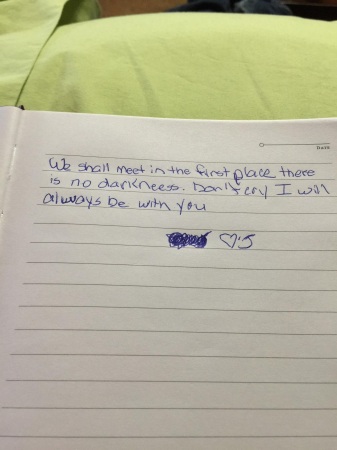 DATE
We shall meet in the first place there
is no darkneess. Don't cry I will
always be with you
♡:J